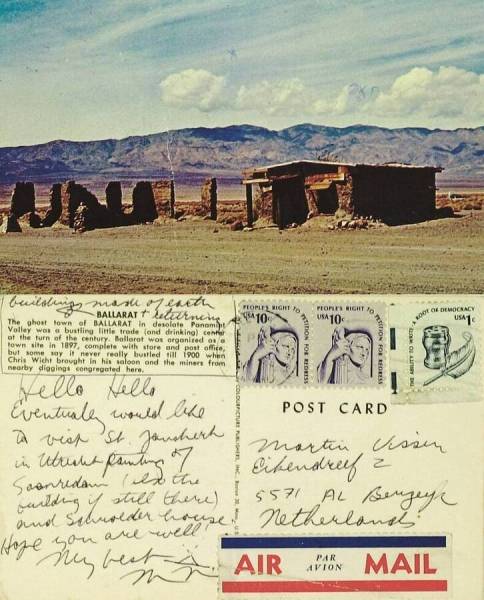 buildings made of earth
BALLARAT + returning
The ghost town of BALLARAT in desolate Panamint
Valley was a bustling little trade (and drinking) center
at the turn of the century. Ballarat was organized as a
town site in 1897, complete with store and post office,
but some say it never really bustled till 1900 when
Chris Wicht brought in his saloon and the miners from
nearby diggings congregated here.
Hello Hello
Eventually would like
to visit St.
in Utrecht painting of
Saenredam (also the
building if still there)
and Schroeder house
Hope you are well
My best
PEOPLE'S RIGHT TO PETITION
USA 10c
FOR REDRESS
PEOPLE'S RIGHT TO PETITION
USA 10c
FOR REDRESS
A ROOT OF DEMOCRACY
USA 1c
THE ABILITY TO WRITE
POST CARD
Martin Visser
Eikendreef 2
5571 AL Bergeyk
Netherlands
AIR PAR AVION MAIL